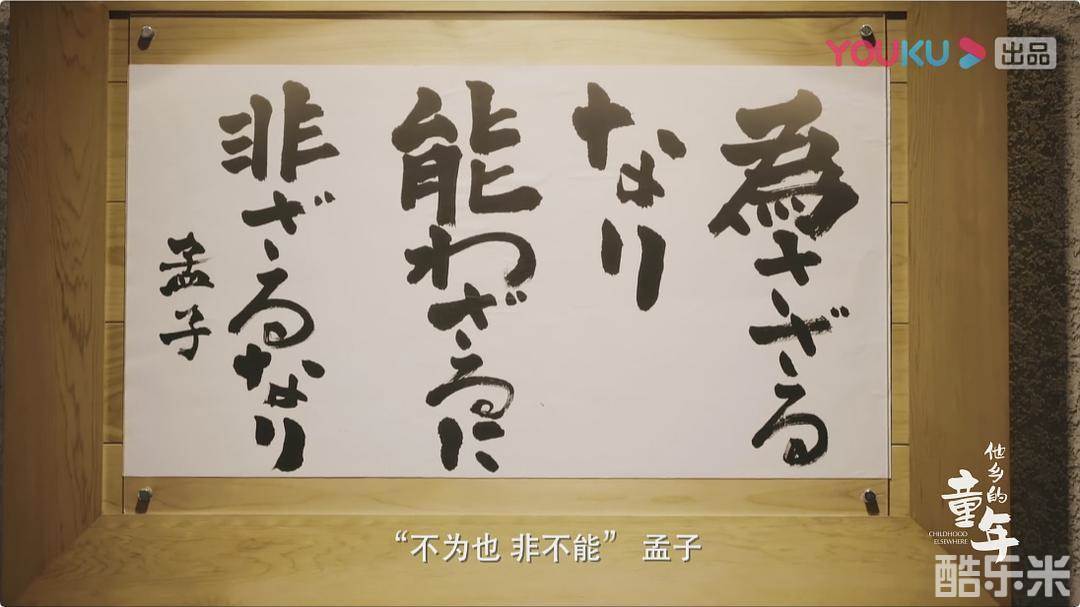 YOUKU 出品
為さざる
なり
能わざるに
非ざるなり
孟子
他乡的
童年
CHILDHOOD
ELSEWHERE
“不为也 非不能” 孟子
酷乐米